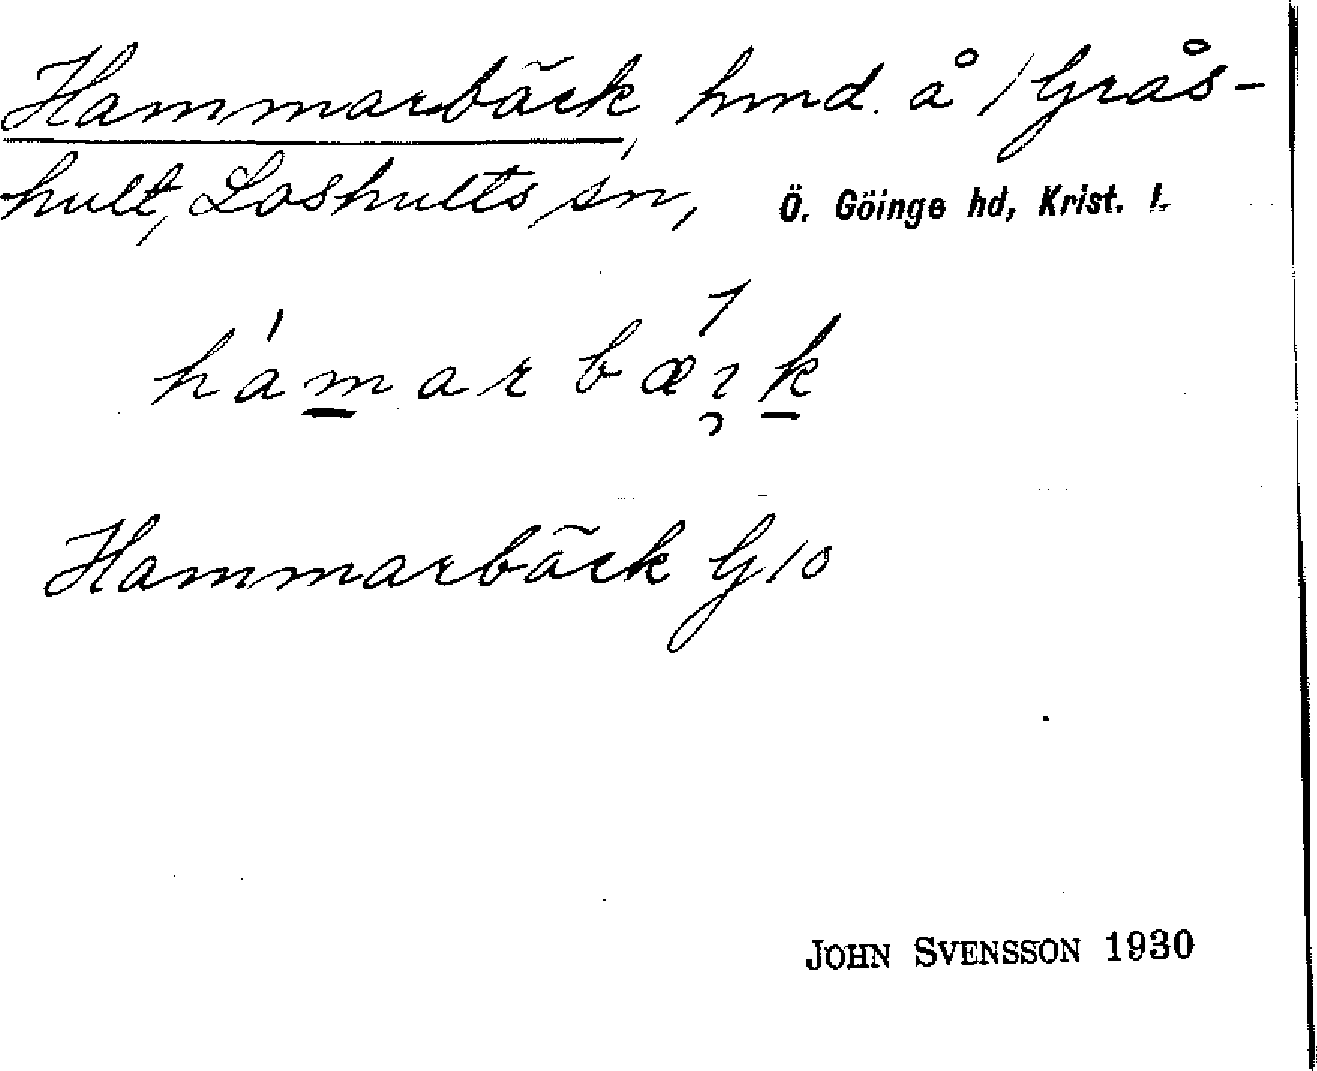 Hammarbäck, hmd. å 1 Grås-
hult, Loshults sn, Ö. Göinge hd, Krist. l.
hámarbæık
Hammarbäck G10
JOHN SVENSSON 1930